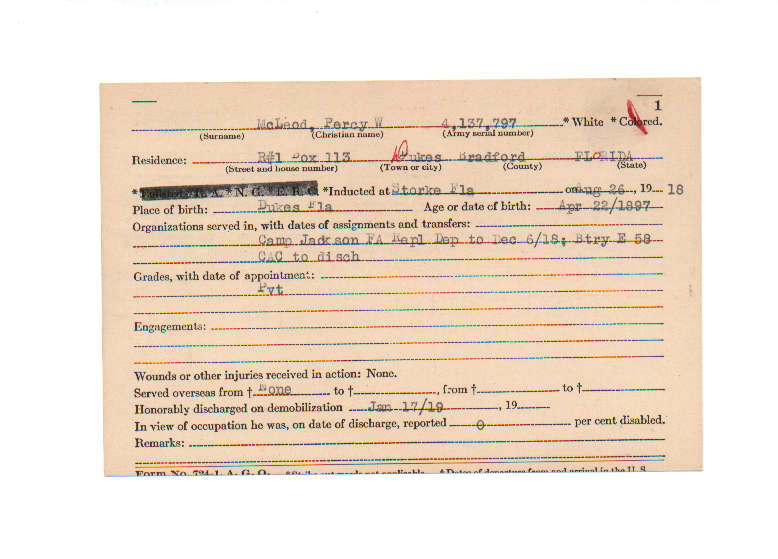 1
McLeod, Percy W 4,137,797 * White * Colored.
(Surname) (Christian name) (Army serial number)
Residence: R#1 Box 113 Dukes Bradford FLORIDA
(Street and house number) (Town or city) (County) (State)
* N. G. * E. R. C. * Inducted at Storke Fla on Aug 26, 19 18
Place of birth: Dukes Fla Age or date of birth: Apr 22/1897
Organizations served in, with dates of assignments and transfers:
Camp Jackson FA Repl Dep to Dec 6/18; Btry E 58
CAC to disch
Grades, with date of appointment:
Pvt
Engagements:
Wounds or other injuries received in action: None.
Served overseas from † None to †, from † to †
Honorably discharged on demobilization Jan 17/19, 19
In view of occupation he was, on date of discharge, reported 0 per cent disabled.
Remarks:
Form No. 724-1, A. G. O. * Strike out words not applicable. † Dates of departure from and arrival in the U. S.